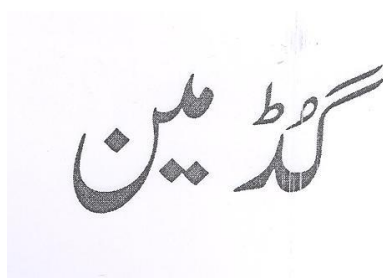 گُڈ مین